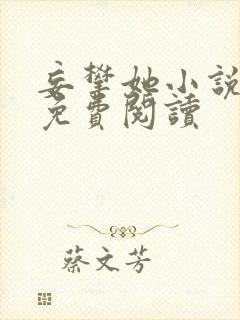 妄攀她小說
免費閱讀
蔡文芳